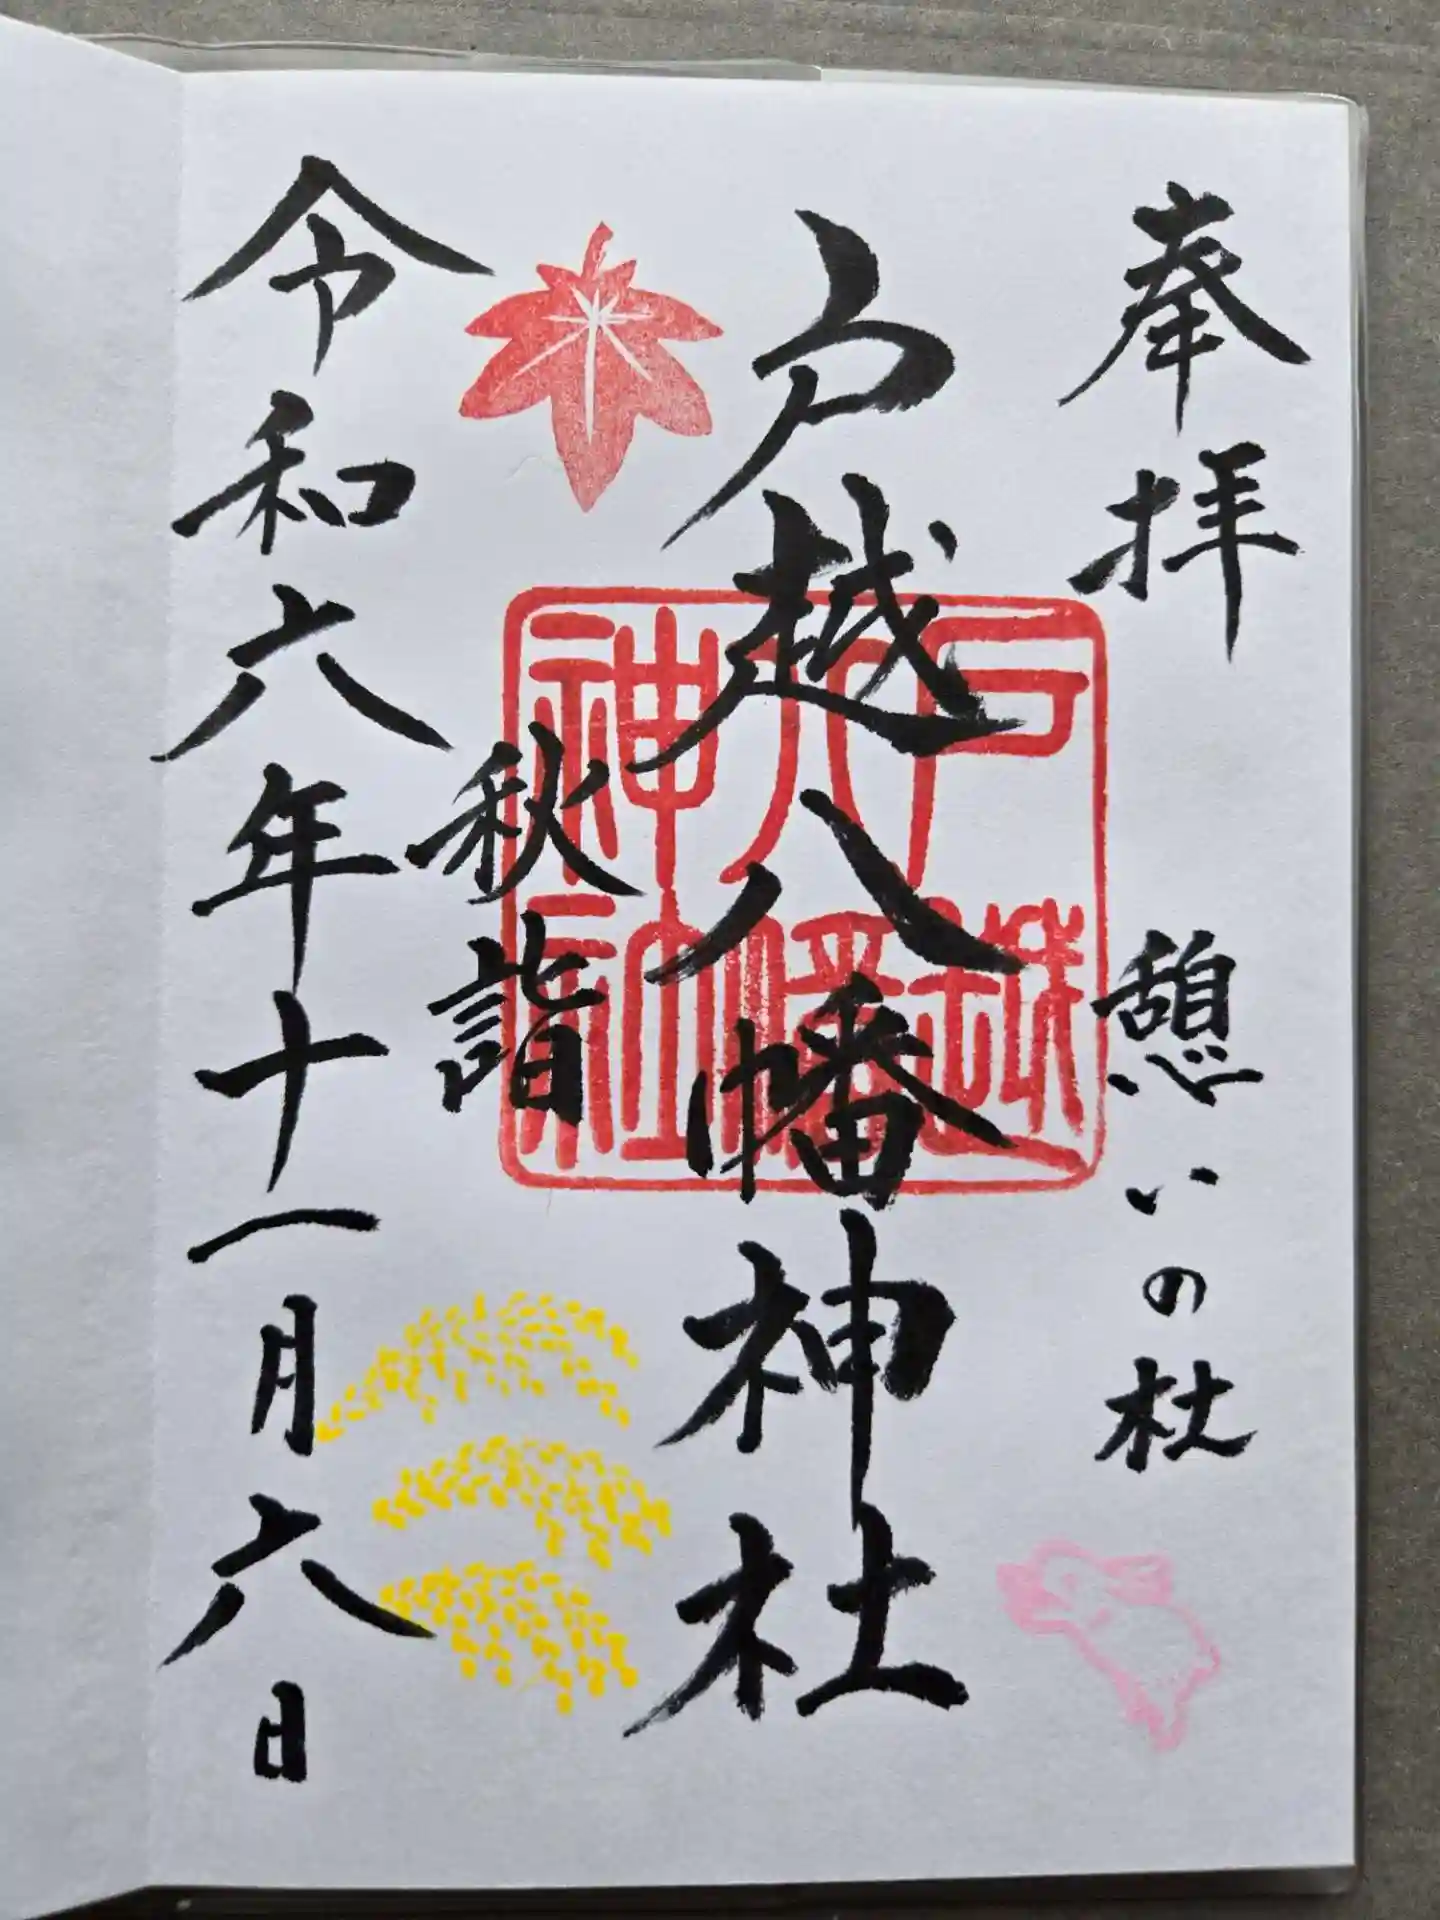 奉拝
憩いの杜
戸越八幡神社
戸越
八幡
神社
秋詣
令和六年十一月六日